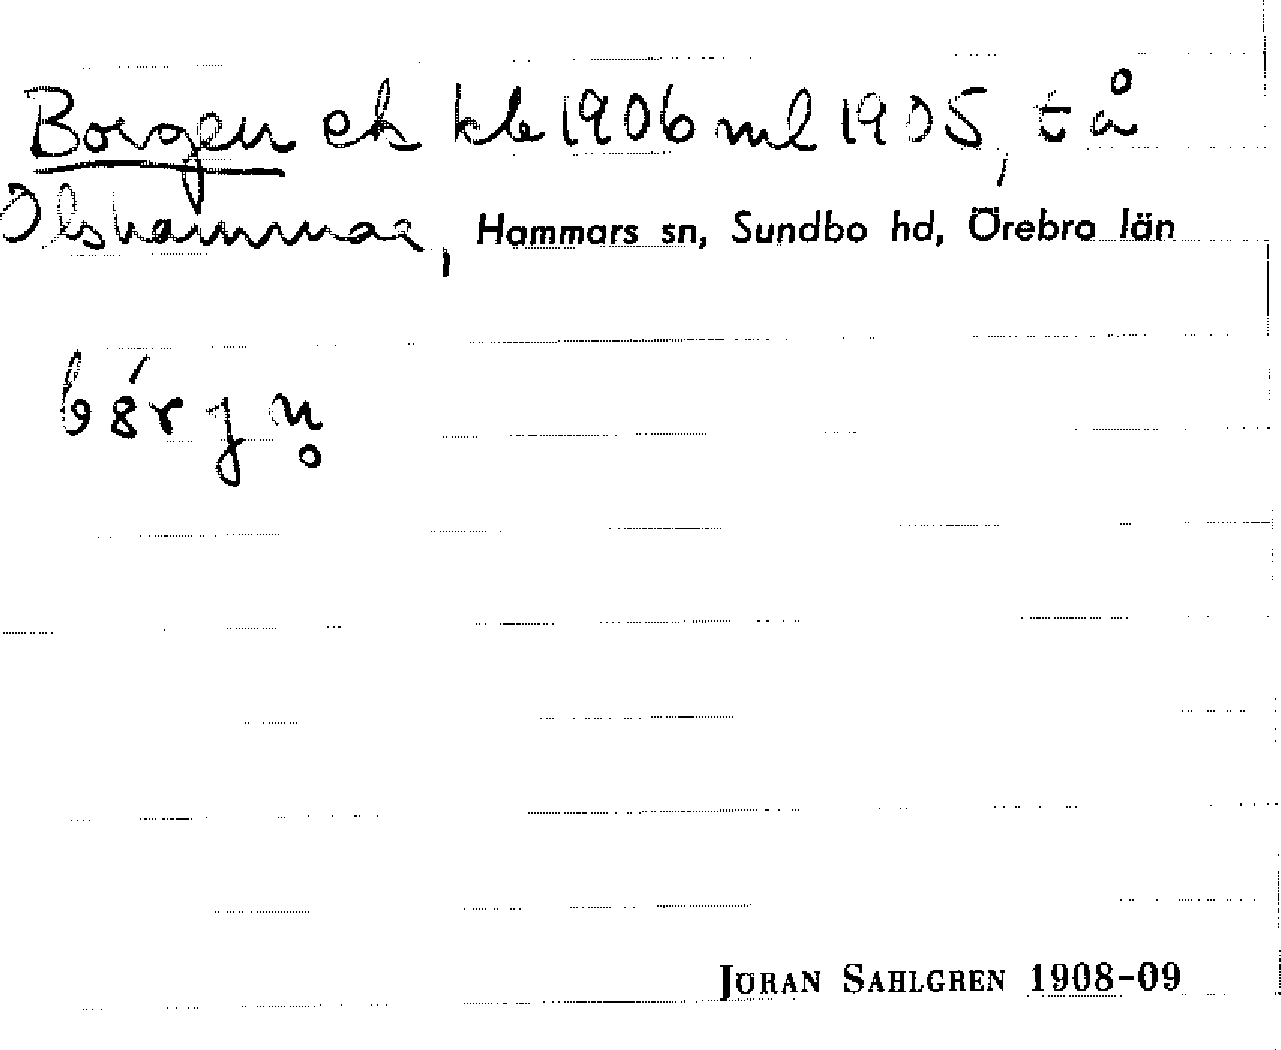 Borgen ek kb 1906 ml 1905, t å
Olshammar, Hammars sn, Sundbo hd, Örebro län
bórjn̥
JÖRAN SAHLGREN 1908-09